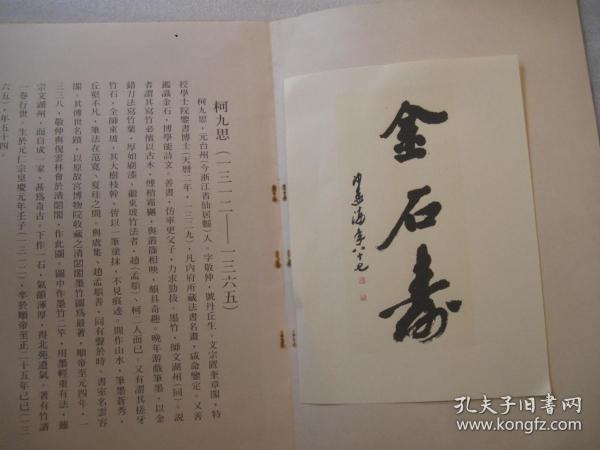 柯九思(一三一二——一三六五)
柯九思，元台州(今浙江省仙居縣)人。字敬仲，號丹丘生。文宗置奎章閣，特
授學士院鑒書博士(天曆二年，一三二九)，凡內府所藏法書名畫，咸命鑒定。又善
鑑識金石，博學能詩文。善書，仿率更父子，力求勁拔。墨竹，師文湖州(同)。說
者謂其寫竹必儐以古木，煙梢霜樾，與叢篠相映，頗具奇趣。晚年游戲筆墨，以金
錯刀法寫竹葉，厚如刷漆，繼東坡竹法者，趙(孟頫)、柯二人而已。又有謂其搓牙
竹石，全師東坡，其大樹枝幹，皆以一筆塗抹，不見痕迹。間作山水，筆墨蒼秀，
丘壑不凡，筆法在范寬、夏珪之間。與虞集、趙孟頫善，同有聲於時。書室名雲容
閣。其傳世名蹟，以原故宮博物院收藏之清閟閣墨竹圖為最著，順帝至元四年，一
三三八，敬仲與倪雲林會於清閟閣，作此圖。圖中作墨竹二竿，用墨輕重有法，雖
宗文湖州，而自成一家，甚為奇古。下作一石，氣韻渾厚，得北苑遺氣。著有竹譜
一卷行世。生於元仁宗皇慶元年壬子(一三一二)，卒於順帝至正二十五年乙巳(一三
六五)，年五十四。
金石壽
沙孟海年八十七
孔夫子旧書网
www.kongfz.com